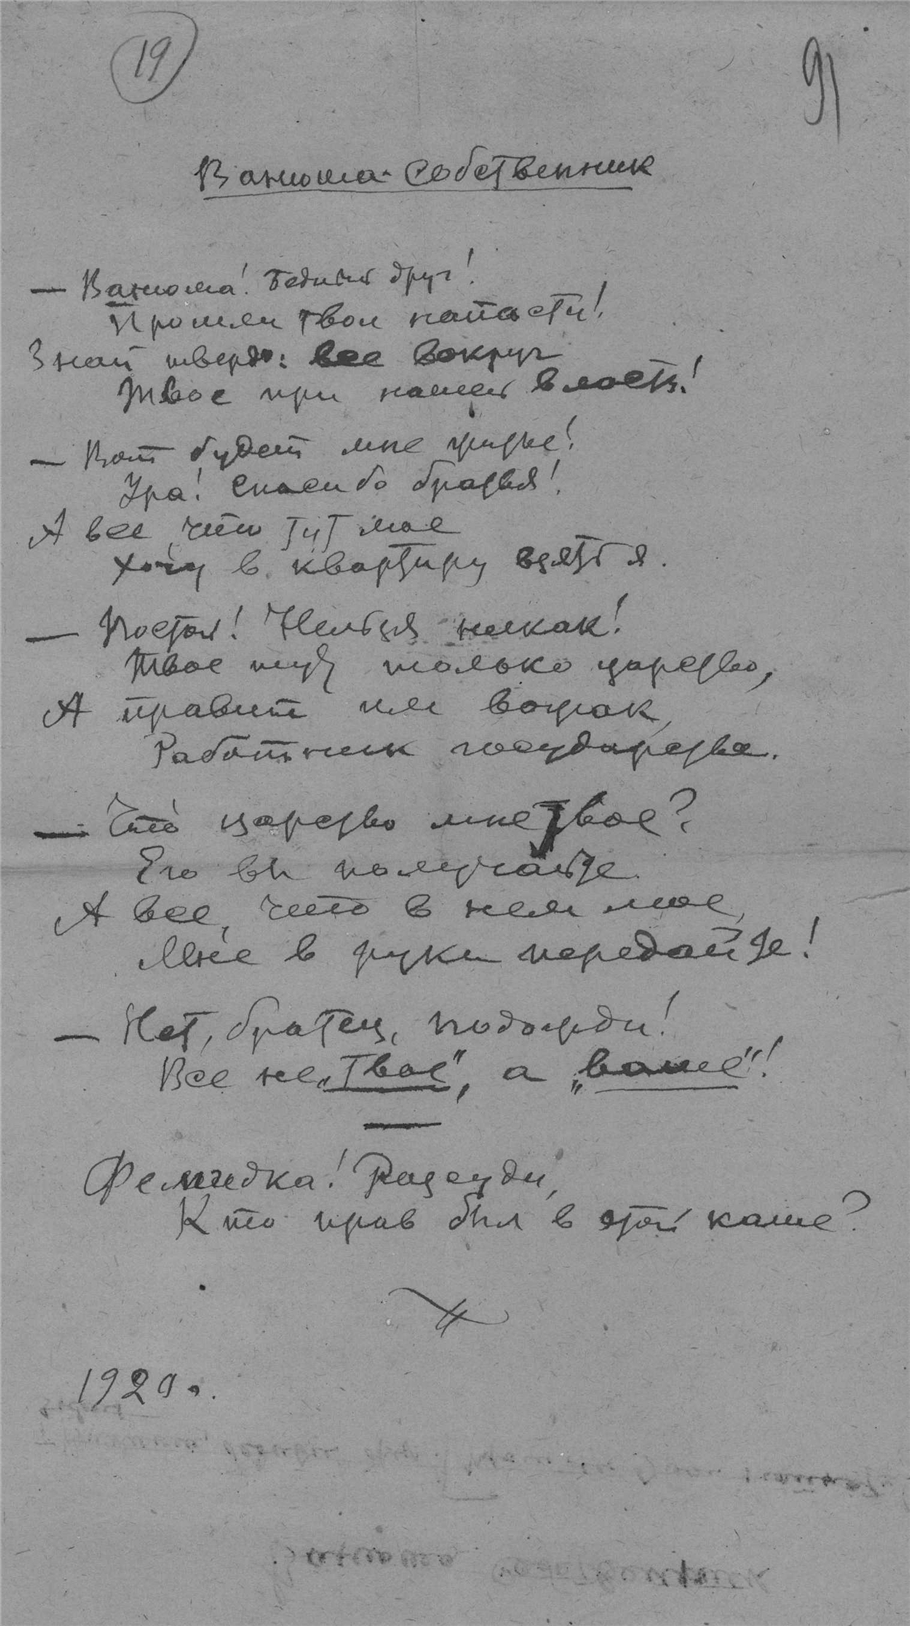 19
91
Ванюша-собственник
— Ванюша! Бедный друг!
Прошли твои напасти!
Знай твердо: все вокруг
Твое при нашей власти!
— Вот будет мне житье!
Ура! Спасибо братья!
А все, что тут мое
Хочу в квартиру взять я.
— Постой! Нельзя никак!
Твое тут только царство,
А правит им вожак,
Работник государства.
— Что царство мне твое?
Его вы получайте
А все, что в нем мое,
Мне в руки передайте!
— Нет, братец, подожди!
Все не „твое", а „ваше"!
Фемидка! Рассуди,
Кто прав был в этой каше?
1920 г.
Ванюша собственник